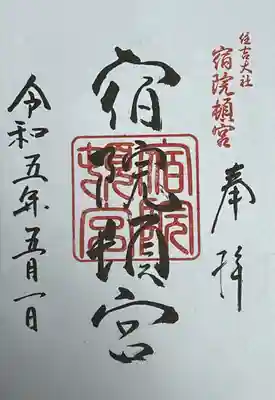 住吉大社
宿院頓宮
奉拝
宿院頓宮
宿院頓宮
令和五年五月一日